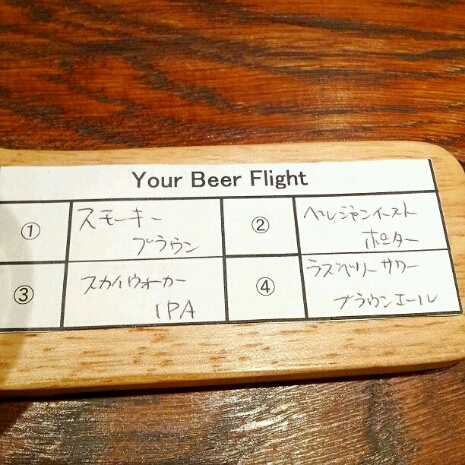 Your Beer Flight
① スモーキー
ブラウン
② ベルジャンイースト
ポーター
③ スカイウォーカー
IPA
④ ラズベリーサワー
ブラウンエール